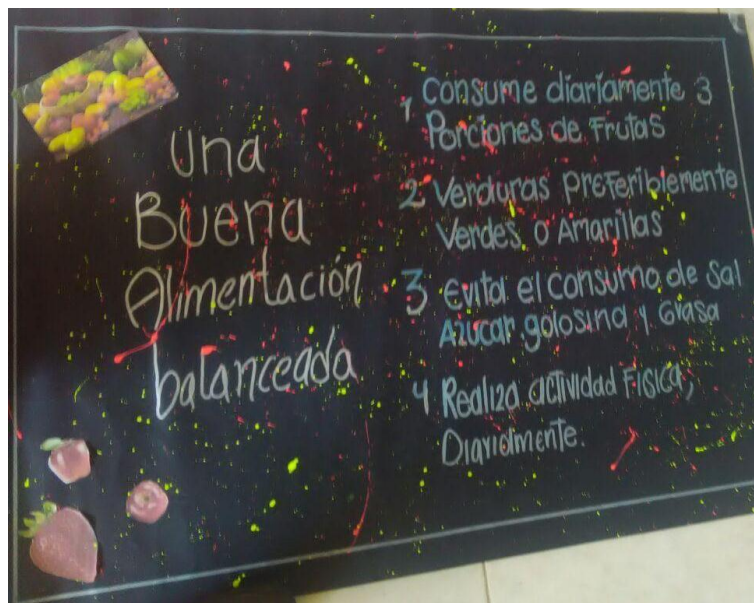 Una
Buena
Alimentación
balanceada
1 Consume diariamente 3
Porciones de Frutas
2 Verduras Preferiblemente
Verdes o Amarillas
3 Evita el consumo de Sal
Azucar golosina y Grasa
4 Realiza actividad Fisica,
Diarialmente.